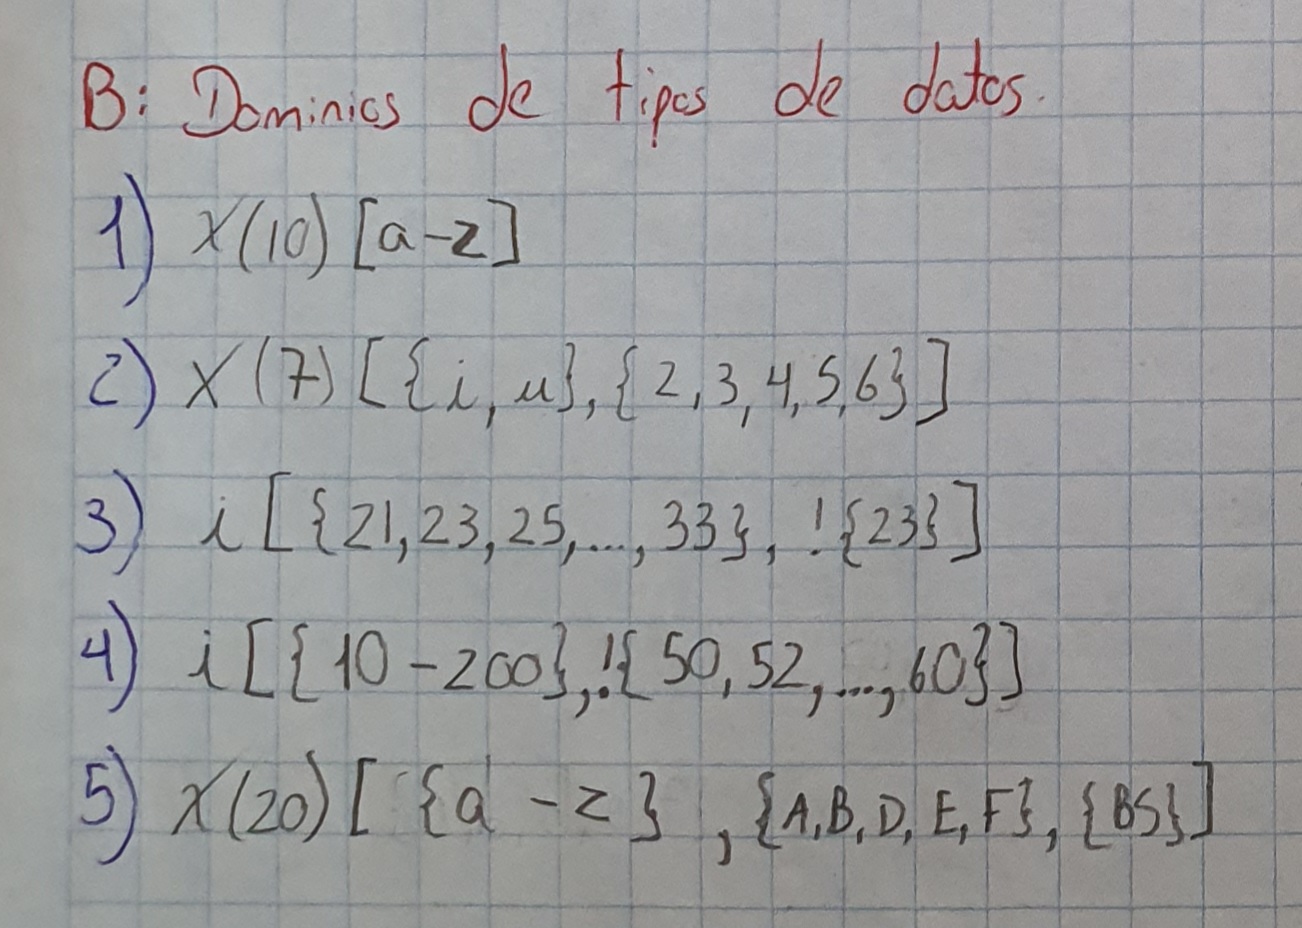 B: Dominios de tipos de datos.
1) X(10) [a-z]
2) X(7) [{i,u},{2,3,4,5,6}]
3) i [{21,23,25,...,33}, !{23}]
4) i [{10-200},!{50,52,...,60}]
5) X(20) [ {a -z} ,{A,B,D,E,F}, {BS}]